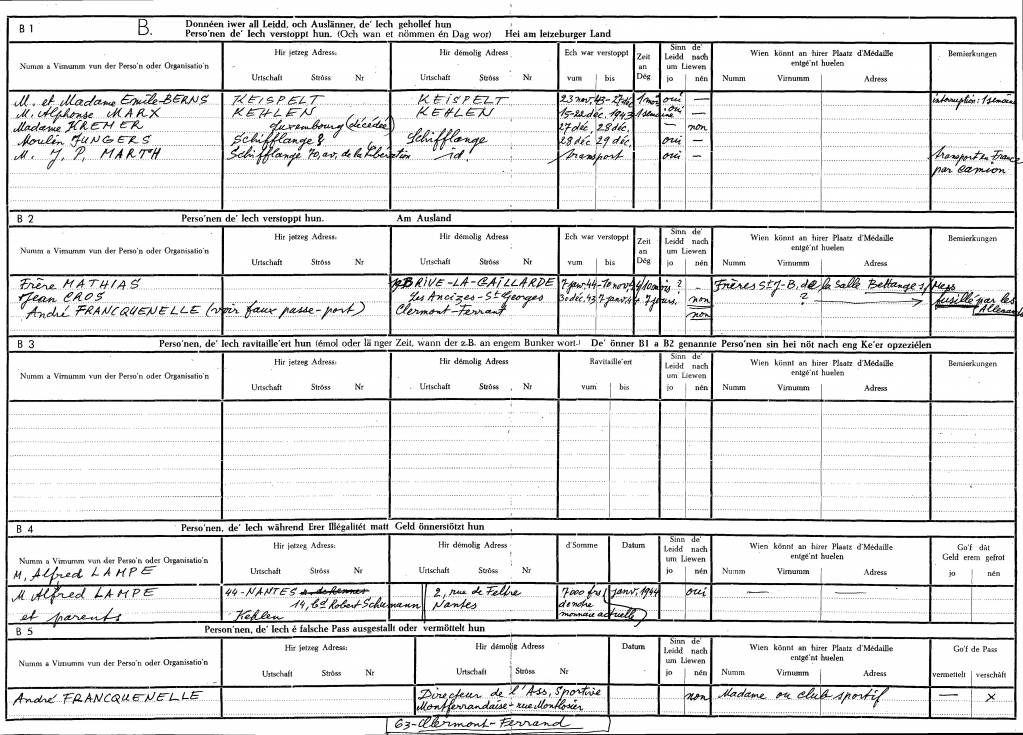 B 1 B. Donnéen iwer all Leidd, och Auslänner, de' lech gehollef hun
Perso'nen de' lech verstoppt hun. (Och wan et nömmen én Dag wor) Hei am letzeburger Land
Numm a Virnumm vun der Perso'n oder Organisatio'n Hir jetzeg Adress: Hir démolig Adress: Ech war verstoppt Zeit an Dég Sinn de' Leidd nach um Liewen Wien könnt an hirer Plaatz d'Médaille entgé'nt huelen Bemierkungen
Urtschaft Ströss Nr Urtschaft Ströss Nr vum bis jo nén Numm Virnumm Adress
M. et Madame Emile BERNS KEISPELT KEISPELT 23 nov. 43 - 27 déc. 1 mois oui — interruption: 1 semaine
M. Alphonse MARX KEHLEN KEHLEN 15-22 déc. 1943 1 semaine oui —
Madame KREMER Luxembourg (décédée) 27 déc. 28 déc. — non
Moulin JUNGERS Schifflange Schifflange 28 déc 29 déc. oui —
M. J. P. MARTH Schifflange 70, av. de la Libération id. transport oui — transport en France
par camion
B 2 Perso'nen de' lech verstoppt hun. Am Ausland
Numm a Virnumm vun der Perso'n oder Organisatio'n Hir jetzeg Adress: Hir démolig Adress: Ech war verstoppt Zeit an Dég Sinn de' Leidd nach um Liewen Wien könnt an hirer Plaatz d'Médaille entgé'nt huelen Bemierkungen
Urtschaft Ströss Nr Urtschaft Ströss Nr vum bis jo nén Numm Virnumm Adress
Frère MATHIAS BRIVE-LA-GAILLARDE 7 janv. 44 - 10 nov. 10 mois ? - Frères St J-B. de la Salle Bettange s/Mess
Jean CROS Les Ancizes-St Georges 30 déc. 43 7 janv. 44 7 jours. non ? fusillé par les
André FRANCQUENELLE (voir faux passe-port) Clermont-Ferrant non Allemands
B 3 Perso'nen, de' lech ravitaille'ert hun (émol oder länger Zeit, wann der z.B. an engem Bunker wort.) De' önner B1 a B2 genannte Perso'nen sin hei nöt nach eng Ke'er opzeziélen
Numm a Virnumm vun der Perso'n oder Organisatio'n Hir jetzeg Adress: Hir démolig Adress: Ravitaille'ert Sinn de' Leidd nach um Liewen Wien könnt an hirer Plaatz d'Médaille entgé'nt huelen Bemierkungen
Urtschaft Ströss Nr Urtschaft Ströss Nr vum bis jo nén Numm Virnumm Adress
B 4 Perso'nen, de' lech während Erer Illégalitét matt Geld önnerstötzt hun
Numm a Virnumm vun der Perso'n oder Organisatio'n Hir jetzeg Adress: Hir démolig Adress: d'Somme Datum Sinn de' Leidd nach um Liewen Wien könnt an hirer Plaatz d'Médaille entgé'nt huelen Go'f dât Geld erem gefrot
M. Alfred LAMPE Urtschaft Ströss Nr Urtschaft Ströss Nr jo nén Numm Virnumm Adress jo nén
M Alfred LAMPE 44-NANTES 2, rue de Feltre 7000 frs janv. 1944 oui — —
14, Bd Robert Schumann Nantes de notre
et parents Kehlen monnaie actuelle)
B 5 Perso'nen, de' lech é falsche Pass ausgestallt oder vermöttelt hun
Numm a Virnumm vun der Perso'n oder Organisatio'n Hir jetzeg Adress: Hir démolig Adress: Datum Sinn de' Leidd nach um Liewen Wien könnt an hirer Plaatz d'Médaille entgé'nt huelen Go'f de Pass
Urtschaft Ströss Nr Urtschaft Ströss Nr jo nén Numm Virnumm Adress vermettelt verschâft
André FRANCQUENELLE Directeur de l'Ass. Sportive non Madame ou club sportif — x
Montferrandaise - rue Montlosier
63-Clermont-Ferrand